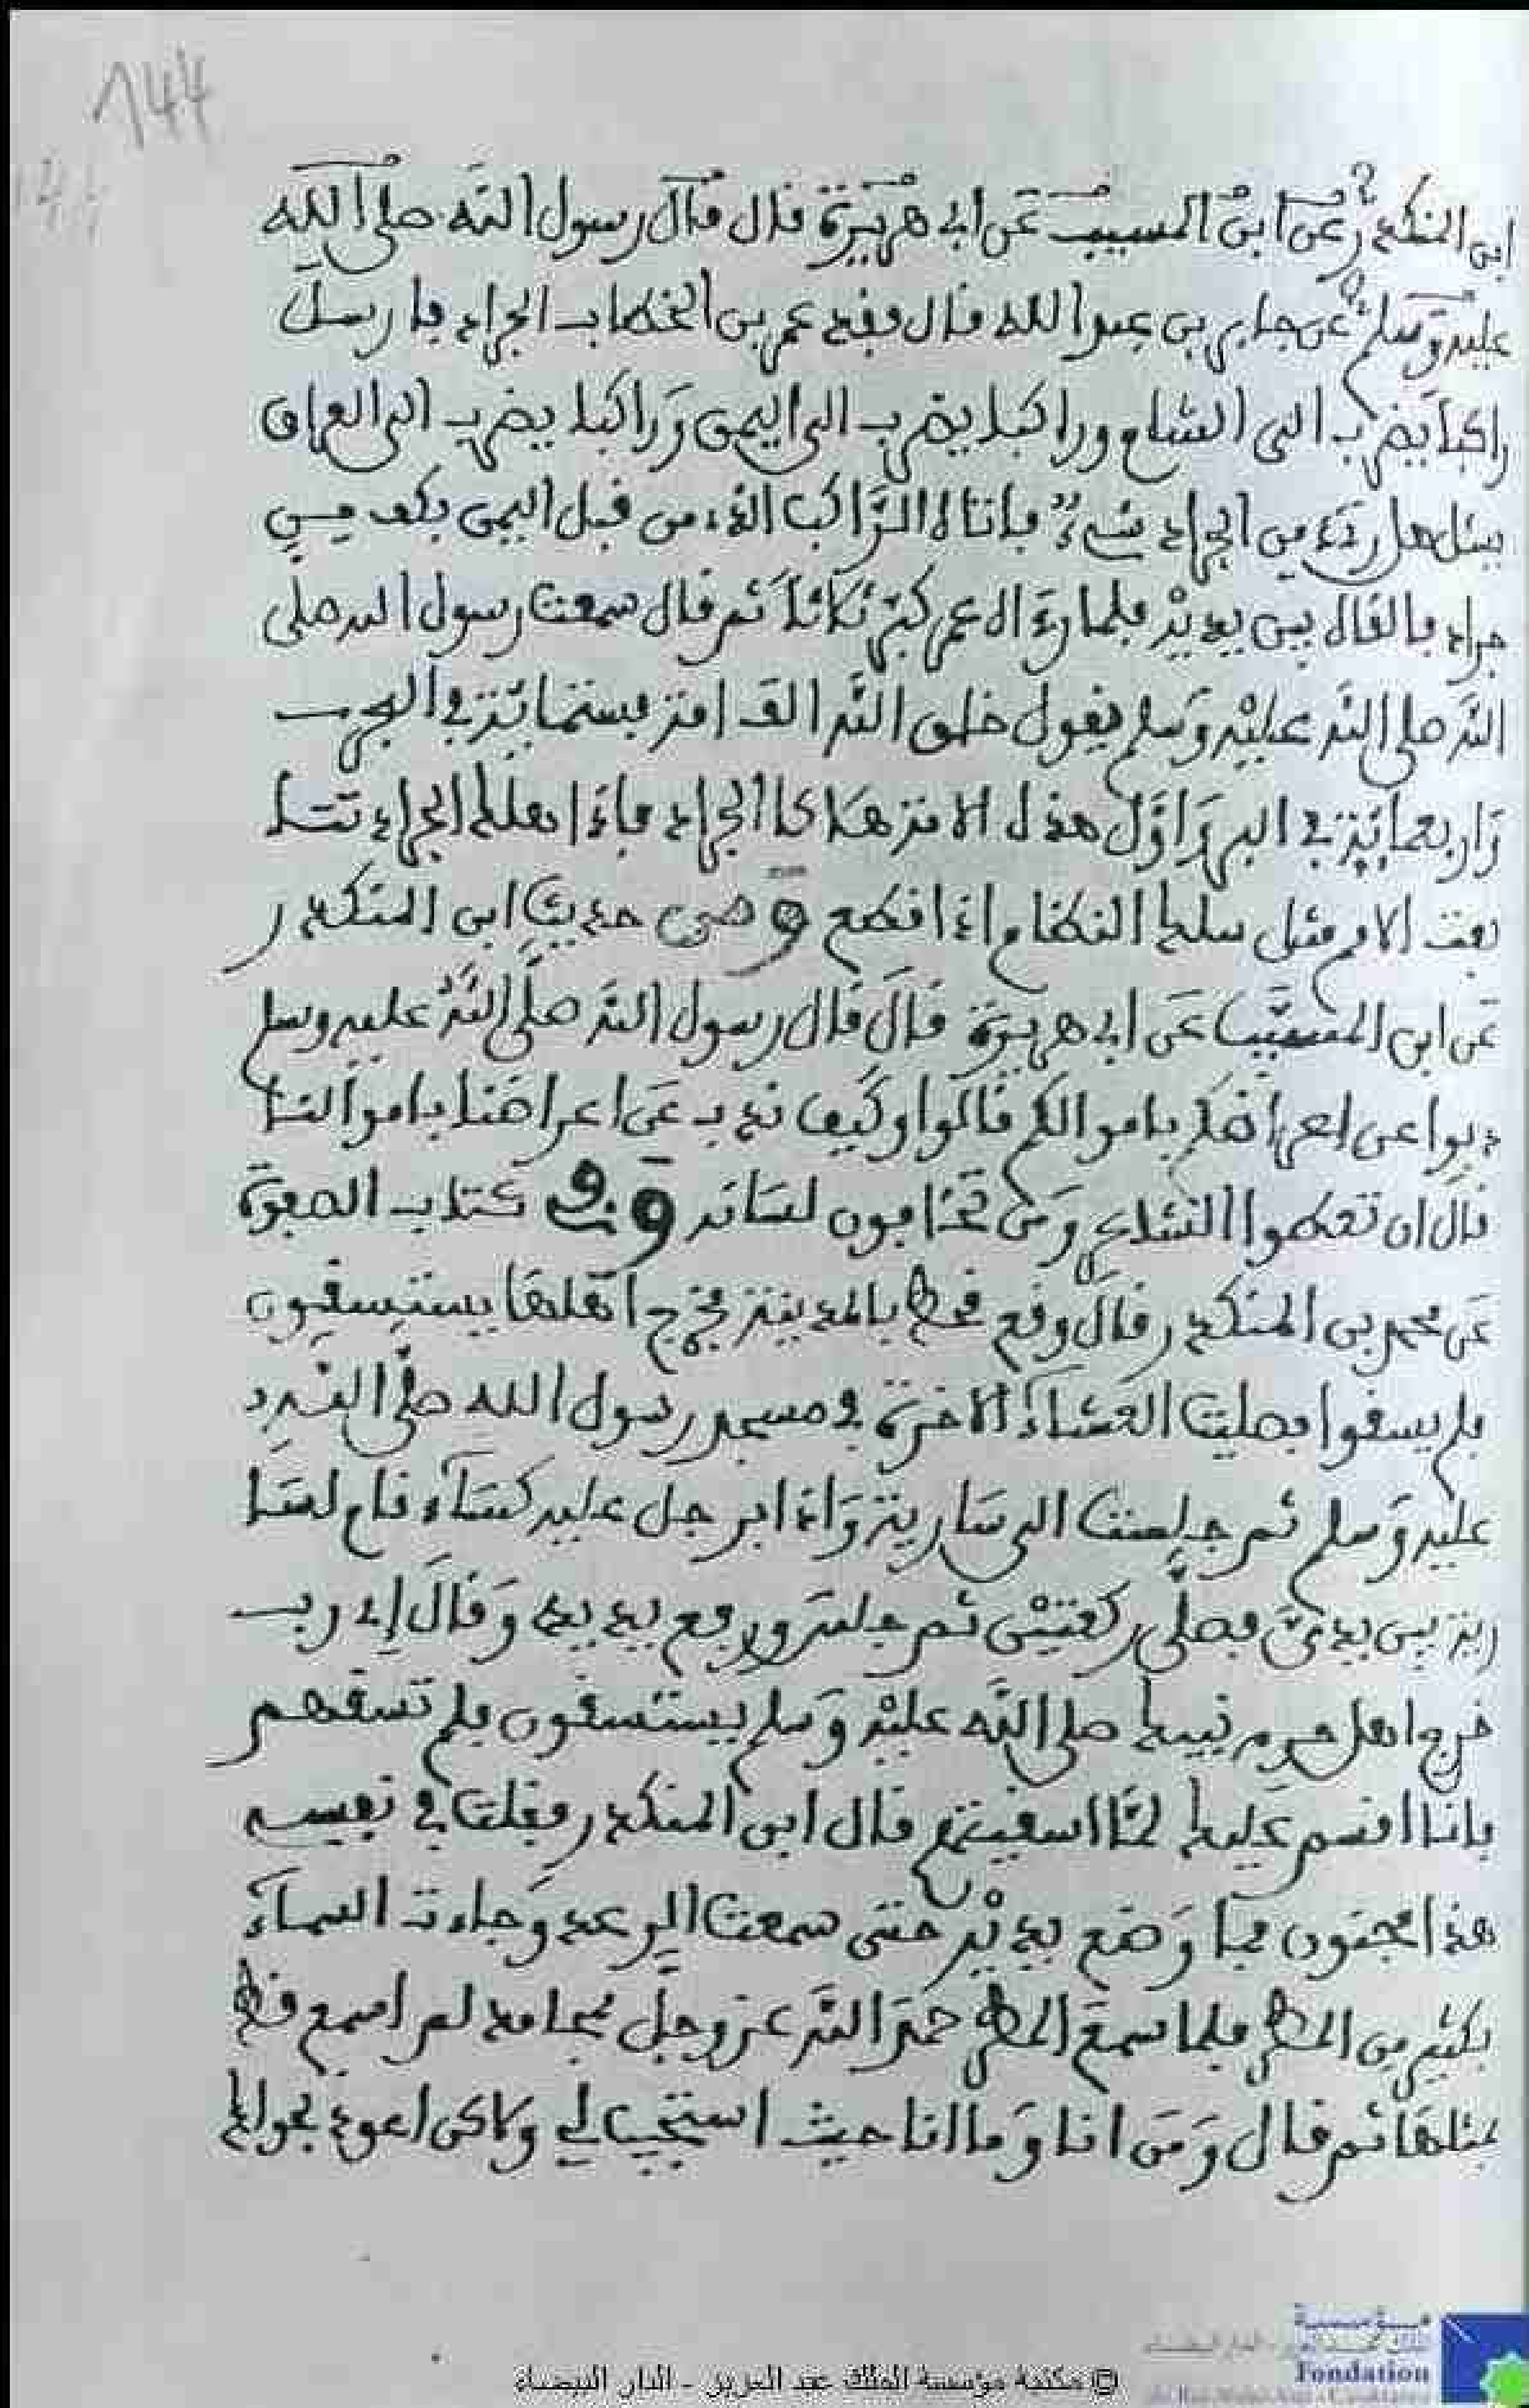 144
ابن المنكدر عن ابن المسيب عن ابي هريرة قال قال رسول الله صلى الله
عليه وسلم عن جابر بن عبد الله قال فقد عمر بن الخطاب الجراد فارسل
راكبا يضرب الى الشام وراكبا يضرب الى اليمن وراكبا يضرب الى العراق
يسئل هل رءي من الجراد شيء فاتاه الراكب الذي من قبل اليمن بكف من
جراد فالقاه بين يديه فلما رءاه عمر كبر ثلاثا ثم قال سمعت رسول الله صلى
الله صلى الله عليه وسلم يقول خلق الله الف امة فستمائة في البحر
واربعمائة في البر واول هذه الامة هلاكا الجراد فاذا هلك الجراد تتا
بعت الامم مثل سلك النظام اذا انقطع ومن حديث ابن المنكدر
عن ابن المسيب عن ابي هريرة قال قال رسول الله صلى الله عليه وسلم
ذبوا عن اعراضكم باموالكم قالوا وكيف نذب عن اعراضنا باموالنا
قال ان تعطوا الشاعر ومن تخافون لسانه وفي كتاب الصفوة
عن محمد بن المنكدر قال وقع قحط بالمدينة فخرج اهلها يستسقون
فلم يسقوا فصليت العشاء الاخرة في مسجد رسول الله صلى الله
عليه وسلم ثم جلست الى سارية واذا برجل عليه كساء قام لسا
رية بين يدي فصلى ركعتين ثم جلس ورفع يديه وقال اي رب
خرج اهل حرم نبيك صلى الله عليه وسلم يستسقون فلم تسقهم
فانا اقسم عليك لما اسقيتهم قال ابن المنكدر فقلت في نفسي
هذا مجنون فما وضع يديه حتى سمعت الرعد وجاءت السماء
بكثير من المطر فلما سمع المطر حمد الله عز وجل بمحامد لم اسمع قط
بمثلها ثم قال ومن انا وما انا حيث استجيب لي ولاكن اعوذ بجوارك
© مكتبة مؤسسة الملك عبد العزيز - الدار البيضاء
مؤسسة
Fondation